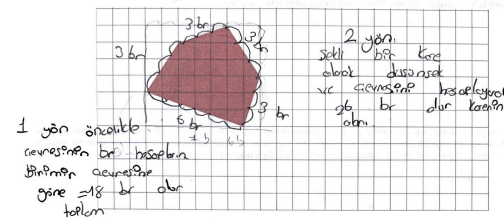 3 br
3 br
3 br
3 br
6 br
1 b
1 b
2 yön.
Şekli bir kare
olarak düşünsek
ve çevresini hesaplayarak
26 br dur karenin
alanı.
1 yön öncelikle
çevresinin br hesapların
birimin çevresine
göre =18 br olur
toplam